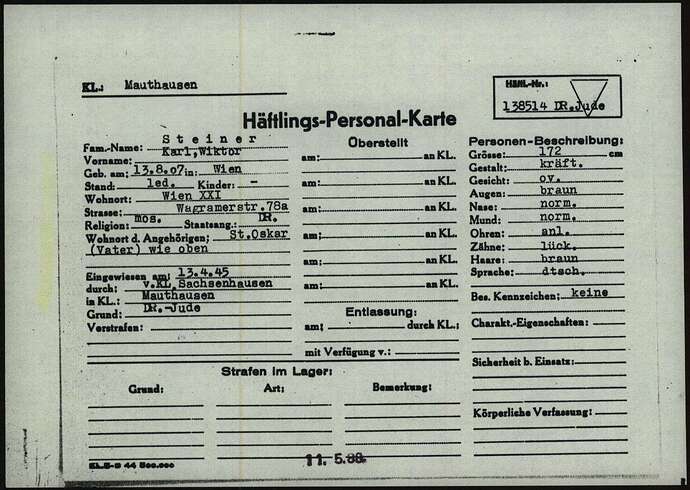 KL.: Mauthausen
Häftl.-Nr.:
138514 DR.Jude
Häftlings-Personal-Karte
Fam.-Name: Steiner
Vorname: Karl,Wiktor
Geb. am: 13.8.07 in: Wien
Stand: led. Kinder: -
Wohnort: Wien XXI
Strasse: Wagramerstr.78a
Religion: mos. Staatsang.: DR.
Wohnort d. Angehörigen: St.Oskar
(Vater) wie oben
Eingewiesen am: 13.4.45
durch: v.KL Sachsenhausen
in KL.: Mauthausen
Grund: DR.-Jude
Vorstrafen:
Oberstellt
am: an KL.
am: an KL.
am: an KL.
am: an KL.
am: an KL.
am: an KL.
Entlassung:
am: durch KL.:
mit Verfügung v.:
Personen-Beschreibung:
Grösse: 172 cm
Gestalt: kräft.
Gesicht: ov.
Augen: braun
Nase: norm.
Mund: norm.
Ohren: anl.
Zähne: lück.
Haare: braun
Sprache: dtsch.
Bes. Kennzeichen: keine
Charakt.-Eigenschaften:
Sicherheit b. Einsatz:
Körperliche Verfassung:
Strafen im Lager:
Grund: Art: Bemerkung:
11. 5.88.